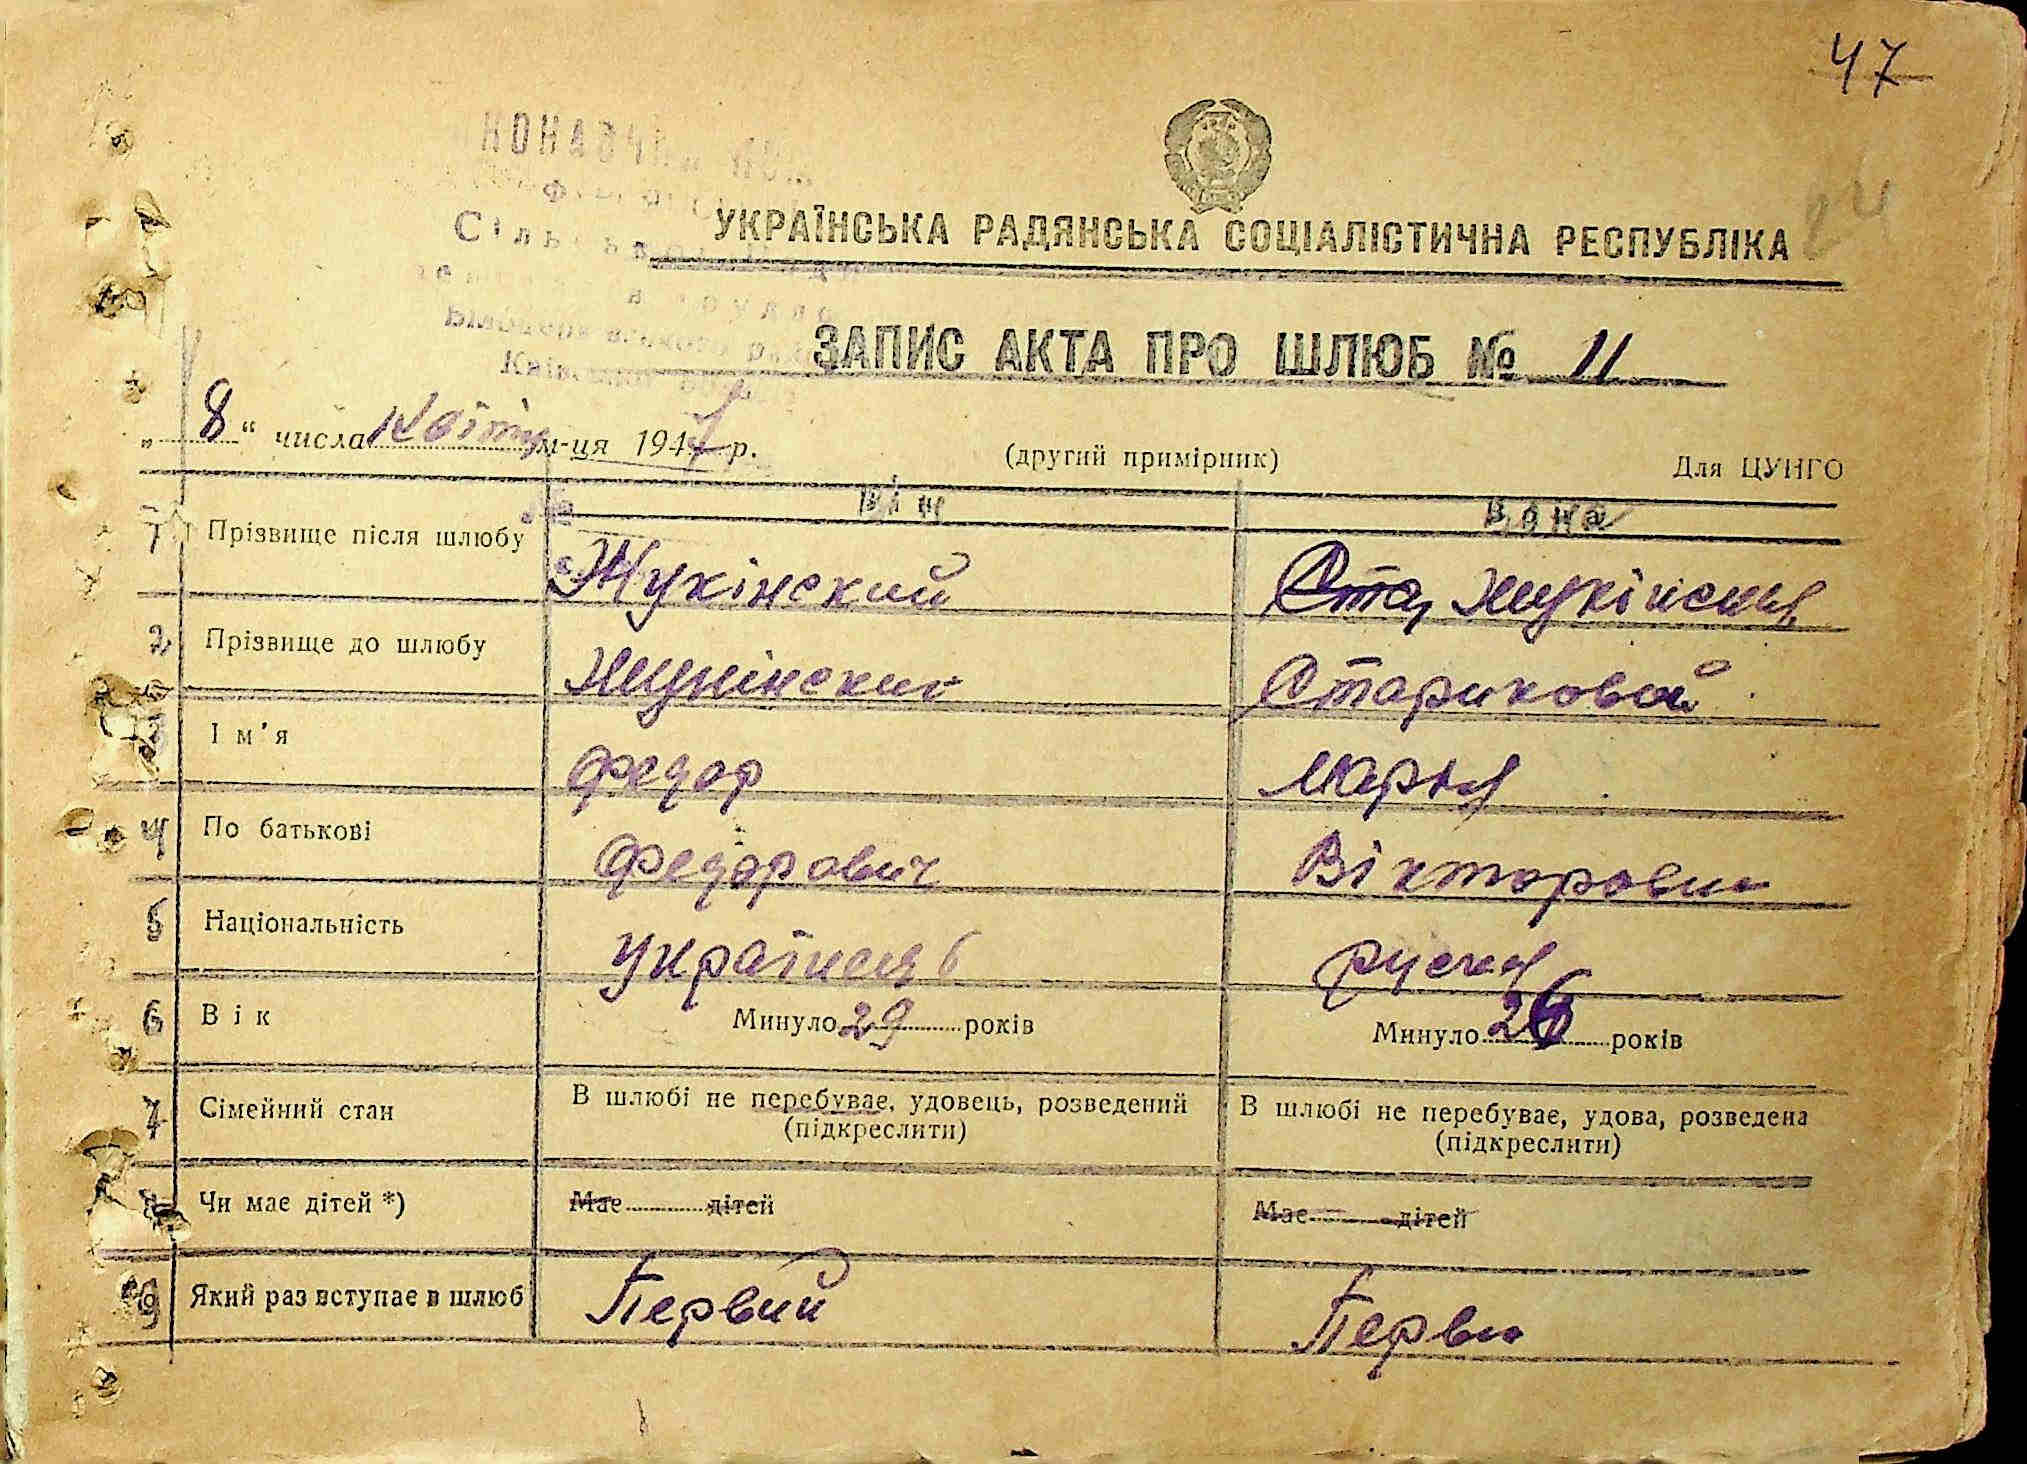 47
24
УКРАЇНСЬКА РАДЯНСЬКА СОЦІАЛІСТИЧНА РЕСПУБЛІКА
ЗАПИС АКТА ПРО ШЛЮБ № 11
„ 8 “ числа Квітня м-ця 1947 р. (другий примірник) Для ЦУНГО
Він Вона
1 Прізвище після шлюбу Жукінский Ста Жукінская
2 Прізвище до шлюбу Жукінский Стариковой
3 Ім’я Федор Марья
4 По батькові Федорович Вікторовн
5 Національність Українець руская
6 Вік Минуло 29 років Минуло 26 років
7 Сімейний стан В шлюбі не перебуває, удовець, розведений (підкреслити) В шлюбі не перебуває, удова, розведена (підкреслити)
8 Чи має дітей *) Має дітей Має дітей
9 Який раз вступає в шлюб Первий Перви